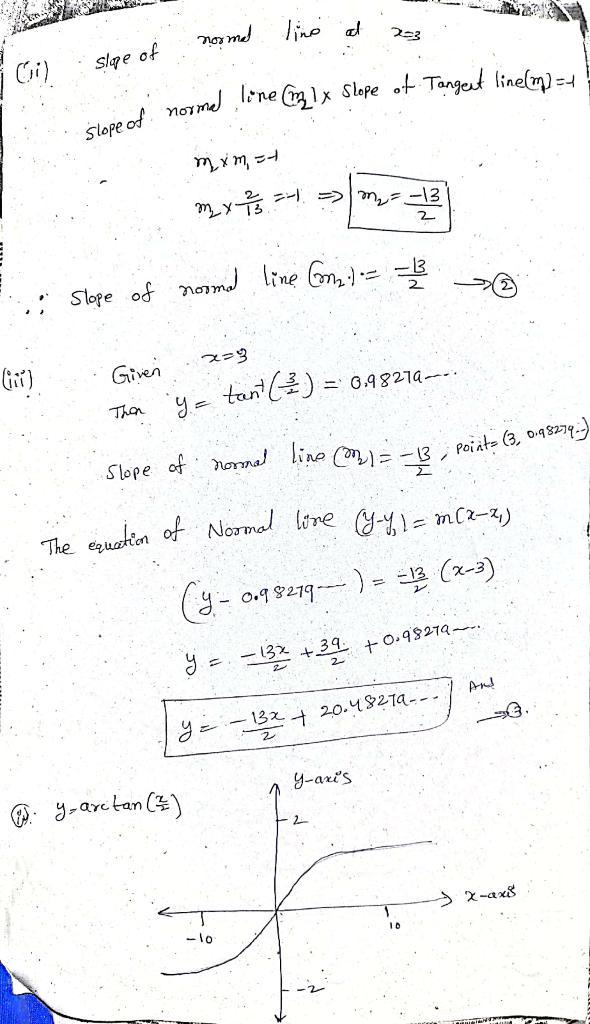 (ii) slope of normal line at x=3
slope of normal line (m₂) x slope of Tangent line(m₁) = -1
m₂ x m₁ = -1
m₂ x 2/13 = -1 ⇒ m₂ = -13/2
∴ Slope of normal line (m₂) = -13/2 → ②
(iii) Given x=3
Then y = tan⁻¹(3/2) = 0.98279---
Slope of normal line (m₂) = -13/2, point= (3, 0.98279--)
The equation of Normal line (y-y₁) = m(x-x₁)
(y - 0.98279---) = -13/2 (x-3)
y = -13x/2 + 39/2 + 0.98279---
y = -13x/2 + 20.48279--- Ans → ③.
y-axis
y=arctan(x/2)
2
x-axis
-10
10
-2